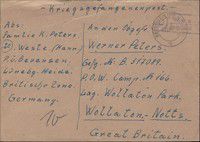 - Kriegsgefangenenpost. -
Abs.
Familie K. Peters.
Weste (Hann)
Lünebg. Heide.
British Zone
Germany.
Werner Peters.
Gefg. N° B
P.O.W. Camp. N° 166.
Wollaton Park.
Wollaton, - Notts.
Great Britain.